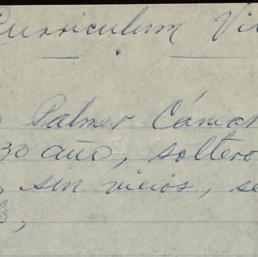 Curriculum Vi
Palmer Cámar
30 año, soltero
sin vicios, se